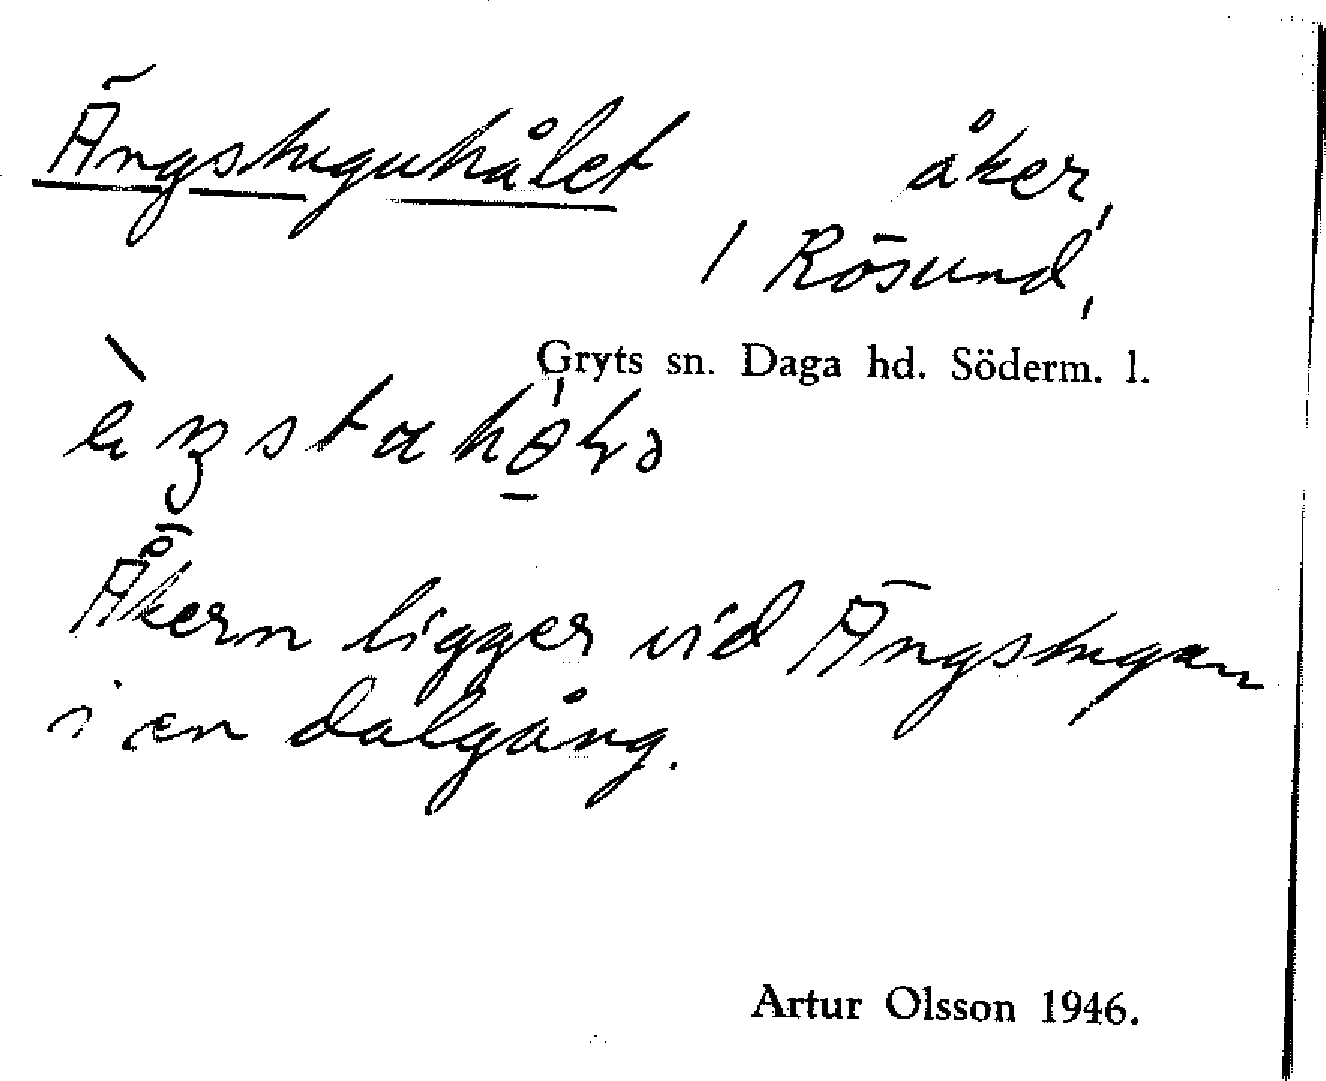 Ängstuguhålet åker,
1 Rösund,
Gryts sn. Daga hd. Söderm. l.
Åkern ligger vid Ängstugan
i en dalgång.
Artur Olsson 1946.